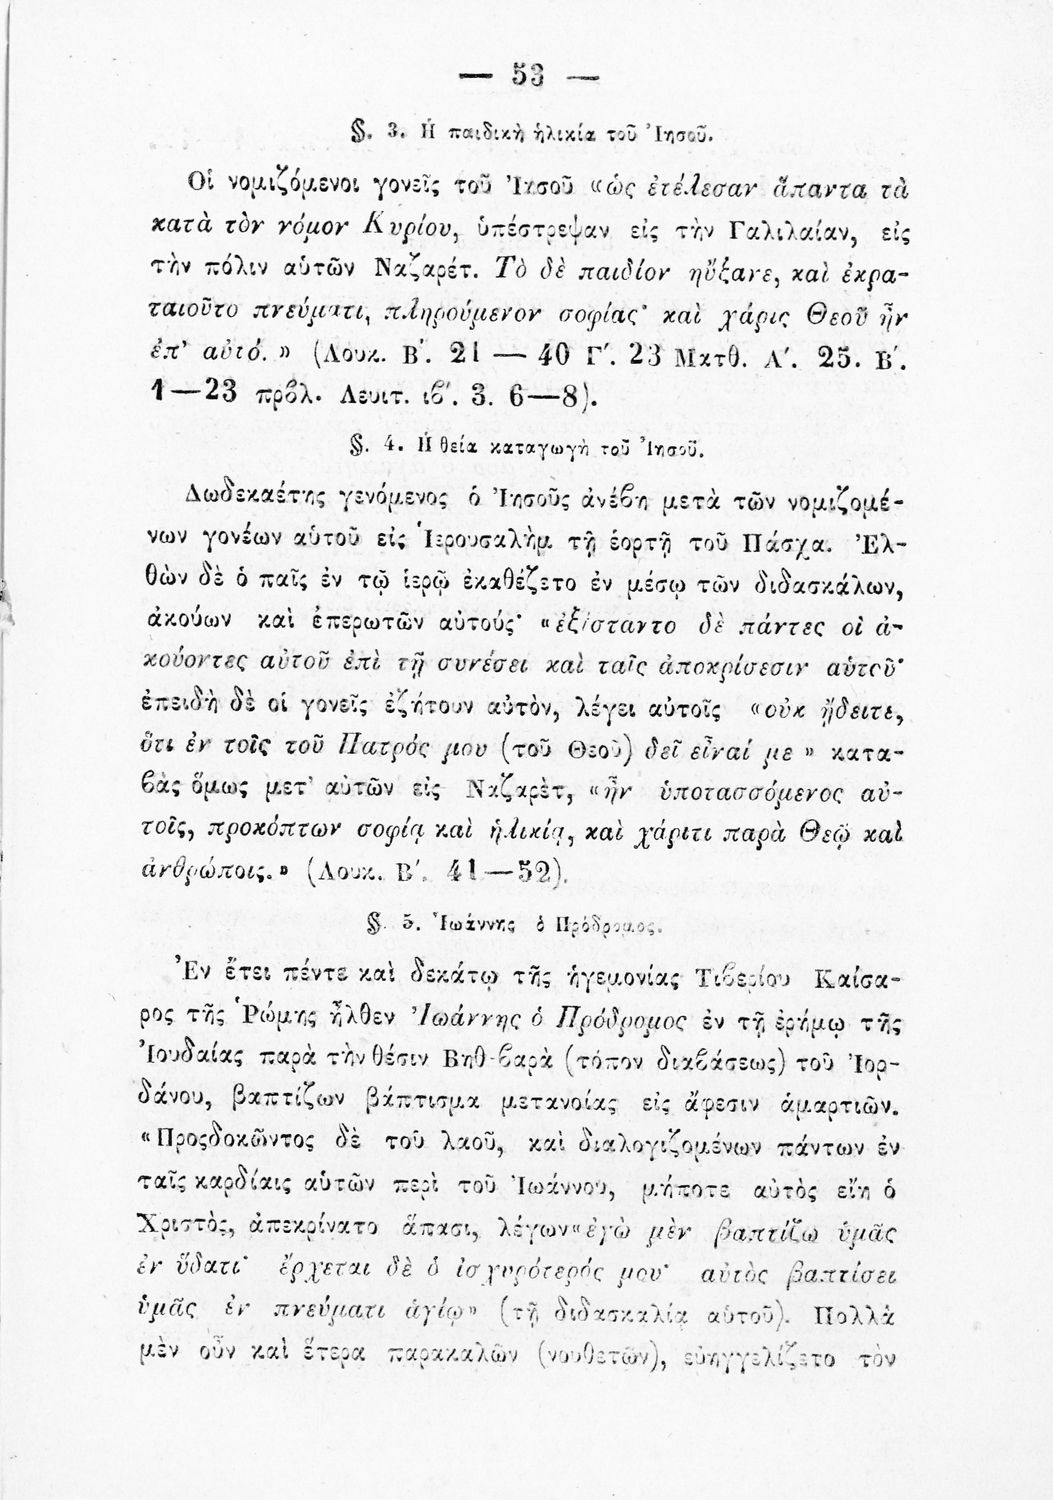 — 53 —
§. 3. Ἡ παιδικὴ ἡλικία τοῦ Ἰησοῦ.
Οἱ νομιζόμενοι γονεῖς τοῦ Ἰησοῦ «ὡς ἐτέλεσαν ἅπαντα τὰ
κατὰ τὸν νόμον Κυρίου, ὑπέστρεψαν εἰς τὴν Γαλιλαίαν, εἰς
τὴν πόλιν αὑτῶν Ναζαρέτ. Τὸ δὲ παιδίον ηὔξανε, καὶ ἐκρα-
ταιοῦτο πνεύματι, πληρούμενον σοφίας· καὶ χάρις Θεοῦ ἦν
ἐπ' αὐτό.» (Λουκ. Β΄. 21 — 40 Γ΄. 23 Ματθ. Α΄. 25. Β΄.
1—23 πρβλ. Λευιτ. ιβ΄. 3. 6—8).
§. 4. Ἡ θεία καταγωγὴ τοῦ Ἰησοῦ.
Δωδεκαέτης γενόμενος ὁ Ἰησοῦς ἀνέβη μετὰ τῶν νομιζομέ-
νων γονέων αὑτοῦ εἰς Ἱερουσαλὴμ τῇ ἑορτῇ τοῦ Πάσχα. Ἐλ-
θὼν δὲ ὁ παῖς ἐν τῷ ἱερῷ ἐκαθέζετο ἐν μέσῳ τῶν διδασκάλων,
ἀκούων καὶ ἐπερωτῶν αὐτούς· «ἐξίσταντο δὲ πάντες οἱ ἀ-
κούοντες αὐτοῦ ἐπὶ τῇ συνέσει καὶ ταῖς ἀποκρίσεσιν αὑτοῦ·
ἐπειδὴ δὲ οἱ γονεῖς ἐζήτουν αὐτὸν, λέγει αὐτοῖς «οὐκ ᾔδειτε,
ὅτι ἐν τοῖς τοῦ Πατρός μου (τοῦ Θεοῦ) δεῖ εἶναί με» κατα-
βὰς ὅμως μετ' αὐτῶν εἰς Ναζαρὲτ, «ἦν ὑποτασσόμενος αὐ-
τοῖς, προκόπτων σοφίᾳ καὶ ἡλικίᾳ, καὶ χάριτι παρὰ Θεῷ καὶ
ἀνθρώποις.» (Λουκ. Β΄. 41—52).
§. 5. Ἰωάννης ὁ Πρόδρομος.
Ἐν ἔτει πέντε καὶ δεκάτῳ τῆς ἡγεμονίας Τιβερίου Καίσα-
ρος τῆς Ῥώμης ἦλθεν Ἰωάννης ὁ Πρόδρομος ἐν τῇ ἐρήμῳ τῆς
Ἰουδαίας παρὰ τὴν θέσιν Βηθ-βαρὰ (τόπον διαβάσεως) τοῦ Ἰορ-
δάνου, βαπτίζων βάπτισμα μετανοίας εἰς ἄφεσιν ἁμαρτιῶν.
«Προςδοκῶντος δὲ τοῦ λαοῦ, καὶ διαλογιζομένων πάντων ἐν
ταῖς καρδίαις αὑτῶν περὶ τοῦ Ἰωάννου, μήποτε αὐτὸς εἴη ὁ
Χριστὸς, ἀπεκρίνατο ἅπασι, λέγων «ἐγὼ μὲν βαπτίζω ὑμᾶς
ἐν ὕδατι· ἔρχεται δὲ ὁ ἰσχυρότερός μου· αὐτὸς βαπτίσει
ὑμᾶς ἐν πνεύματι ἁγίῳ» (τῇ διδασκαλίᾳ αὑτοῦ). Πολλὰ
μὲν οὖν καὶ ἕτερα παρακαλῶν (νουθετῶν), εὐηγγελίζετο τὸν